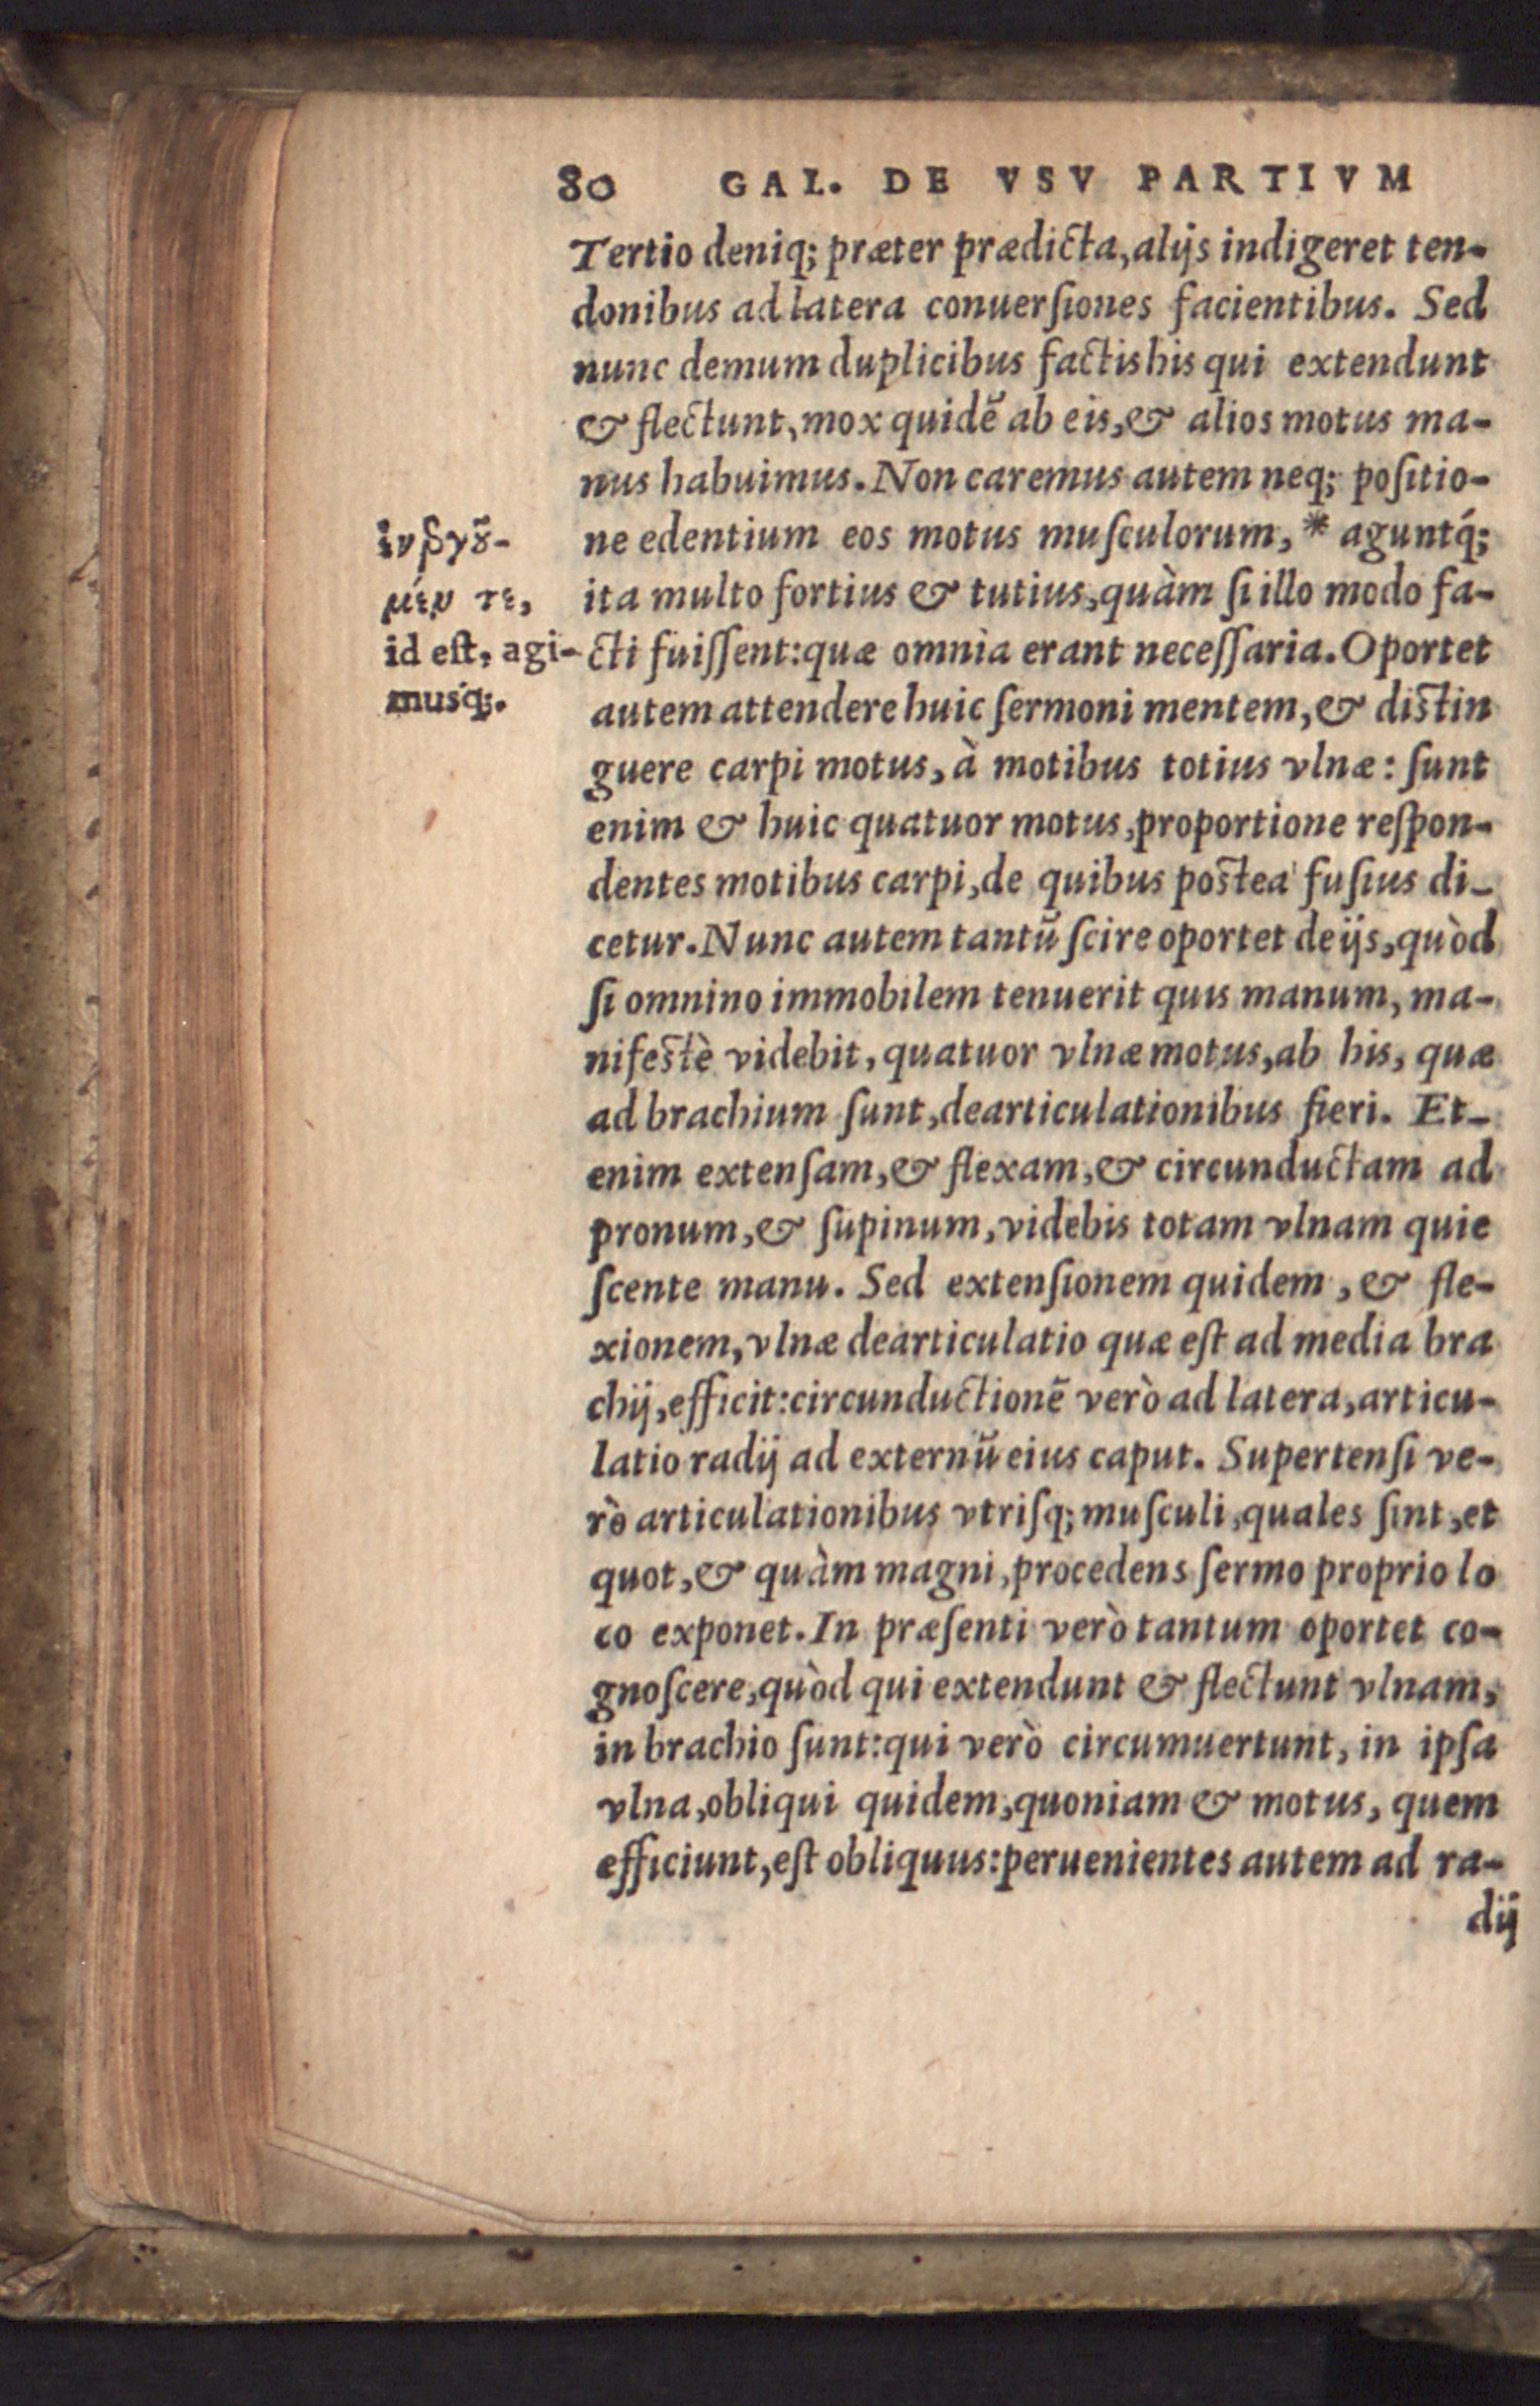 80 GAL. DE VSV PARTIVM
Tertio deniq; præter prædicta, alijs indigeret ten-
donibus ad latera conuerſiones facientibus. Sed
nunc demum duplicibus factis his qui extendunt
& flectunt, mox quidē ab eis, & alios motus ma-
nus habuimus. Non caremus autem neq; poſitio-
ne edentium eos motus muſculorum, * aguntq́;
ita multo fortius & tutius, quàm ſi illo modo fa-
cti fuiſſent: quæ omnia erant neceſſaria. Oportet
autem attendere huic ſermoni mentem, & diſtin
guere carpi motus, à motibus totius vlnæ: ſunt
enim & huic quatuor motus, proportione reſpon-
dentes motibus carpi, de quibus poſtea fuſius di-
cetur. Nunc autem tantū ſcire oportet de ijs, quòd
ſi omnino immobilem tenuerit quis manum, ma-
nifeſtè videbit, quatuor vlnæ motus, ab his, quæ
ad brachium ſunt, dearticulationibus fieri. Et-
enim extenſam, & flexam, & circunductam ad
pronum, & ſupinum, videbis totam vlnam quie
ſcente manu. Sed extenſionem quidem, & fle-
xionem, vlnæ dearticulatio quæ eſt ad media bra
chij, efficit: circunductionē verò ad latera, articu-
latio radij ad externū eius caput. Supertenſi ve-
rò articulationibus vtriſq; muſculi, quales ſint, et
quot, & quàm magni, procedens ſermo proprio lo
co exponet. In præſenti verò tantum oportet co-
gnoſcere, quòd qui extendunt & flectunt vlnam,
in brachio ſunt: qui verò circumuertunt, in ipſa
vlna, obliqui quidem, quoniam & motus, quem
efficiunt, eſt obliquus: peruenientes autem ad ra-
dij
μέν τε,
id eſt, agi-
musq́;.